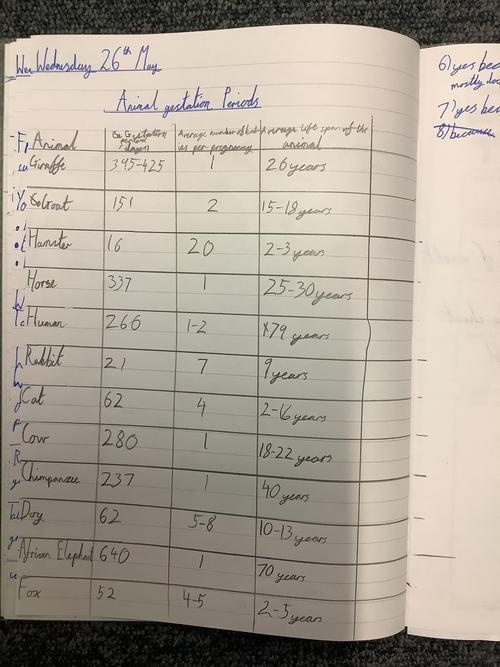 Wednesday 26th May
Animal gestation Periods
Animal Gestation period (days) Average number of babies per pregnancy Average life span of the animal
Giraffe 395-425 1 26 years
Goat 151 2 15-18 years
Hamster 16 20 2-3 years
Horse 337 1 25-30 years
Human 266 1-2 79 years
Rabbit 21 7 9 years
Cat 62 4 2-16 years
Cow 280 1 18-22 years
Chimpanzee 237 1 40 years
Dog 62 5-8 10-13 years
African Elephant 640 1 70 years
Fox 52 4-5 2-5 years
6) yes bec
mostly
7) yes bec
8) because